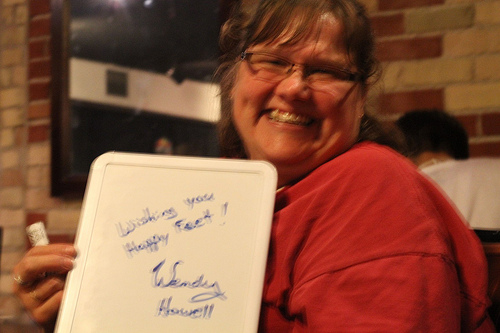 Wishing you
Happy Feet!
Wendy
Howell